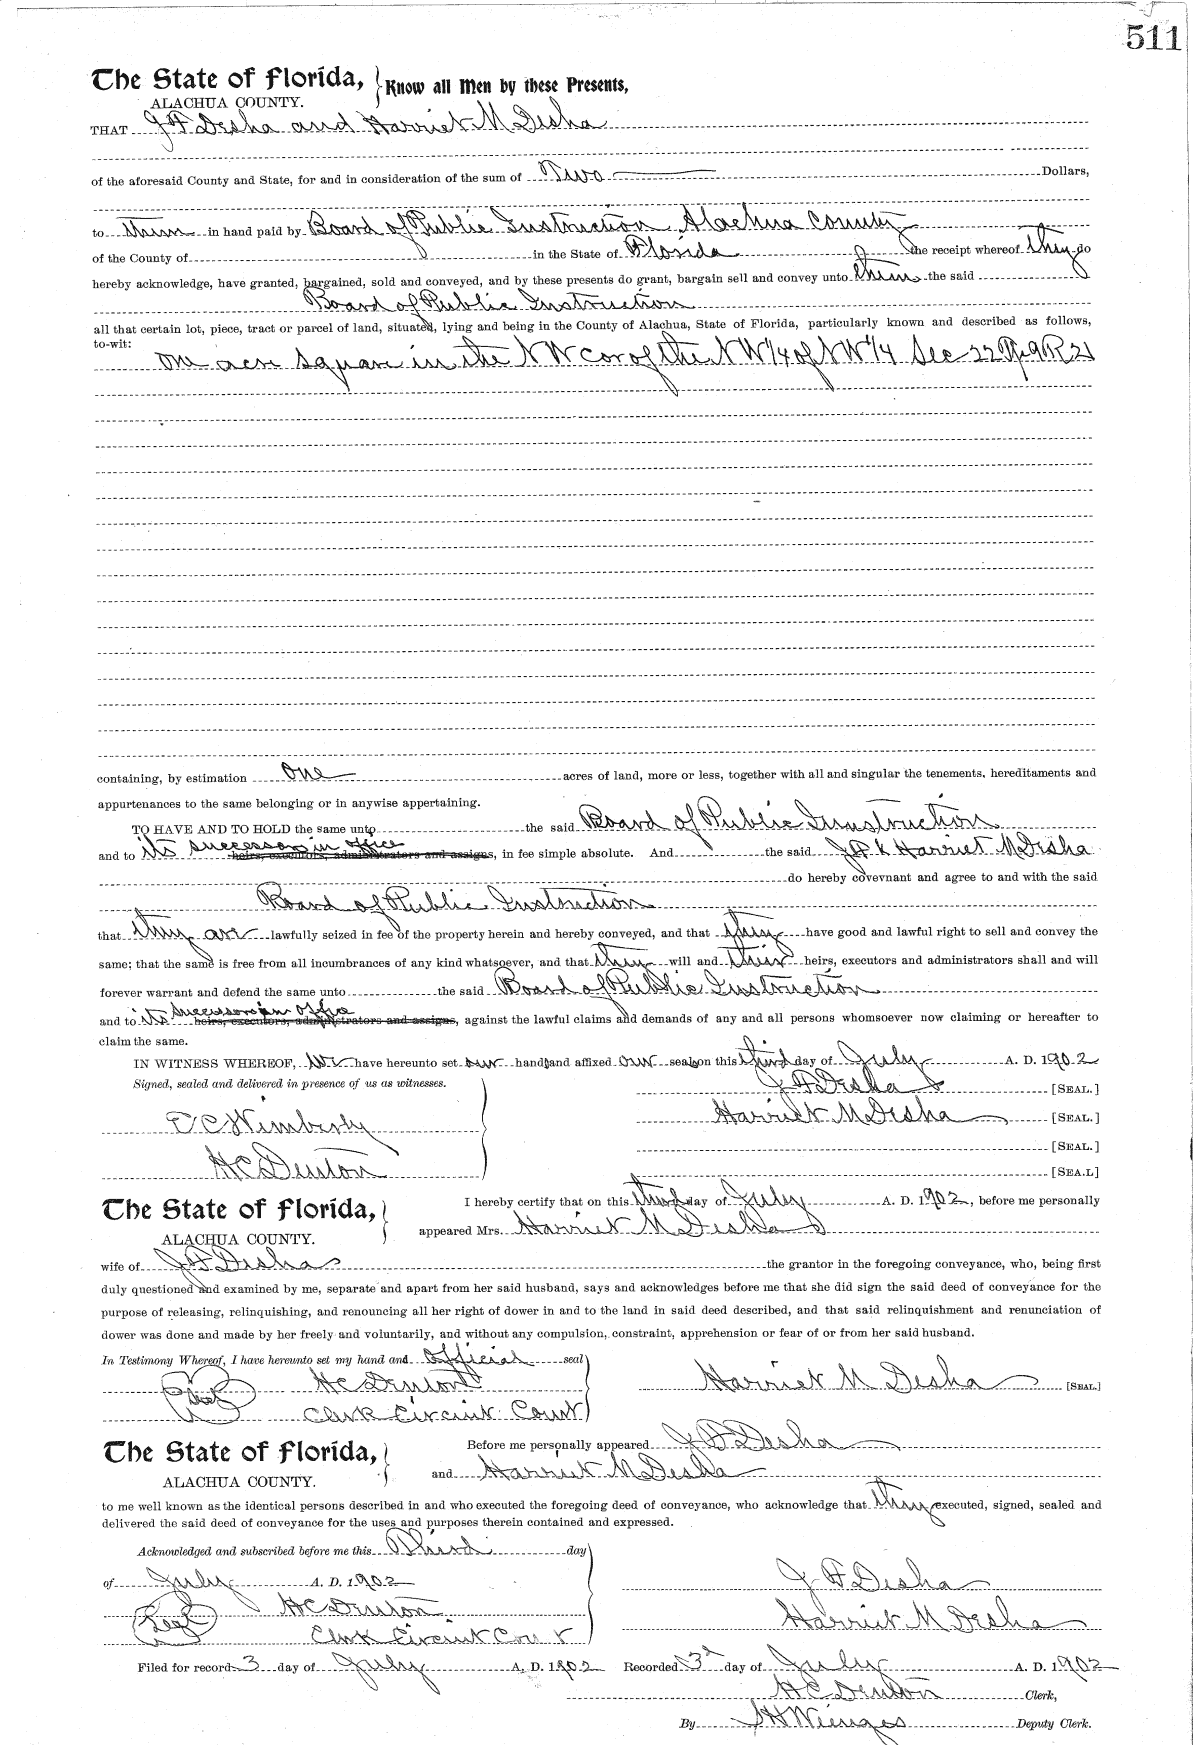 511
The State of Florida, Know all Men by these Presents,
ALACHUA COUNTY.
THAT J F Desha and Harriet M Desha
of the aforesaid County and State, for and in consideration of the sum of Two Dollars,
to them in hand paid by Board of Public Instruction Alachua County
of the County of in the State of Florida the receipt whereof they do
hereby acknowledge, have granted, bargained, sold and conveyed, and by these presents do grant, bargain sell and convey unto them the said
Board of Public Instruction
all that certain lot, piece, tract or parcel of land, situated, lying and being in the County of Alachua, State of Florida, particularly known and described as follows,
to-wit:
One acre square in the NW cor of the NW 1/4 of NW 1/4 Sec 22 Tp 9 R 21
containing, by estimation One acres of land, more or less, together with all and singular the tenements, hereditaments and
appurtenances to the same belonging or in anywise appertaining.
TO HAVE AND TO HOLD the same unto the said Board of Public Instruction
and to its successors in office heirs, executors, administrators and assigns, in fee simple absolute. And the said J F & Harriet M Desha
do hereby covevnant and agree to and with the said
Board of Public Instruction
that they are lawfully seized in fee of the property herein and hereby conveyed, and that they have good and lawful right to sell and convey the
same; that the same is free from all incumbrances of any kind whatsoever, and that they will and their heirs, executors and administrators shall and will
forever warrant and defend the same unto the said Board of Public Instruction
and to its successors in office heirs, executors, administrators and assigns, against the lawful claims and demands of any and all persons whomsoever now claiming or hereafter to
claim the same.
IN WITNESS WHEREOF, We have hereunto set our hands and affixed our seals on this third day of July A. D. 1902
Signed, sealed and delivered in presence of us as witnesses.
J F Desha [SEAL.]
E C Wimberly
Harriet M Desha [SEAL.]
[SEAL.]
H C Denton
[SEA.L]
The State of Florida,
ALACHUA COUNTY.
I hereby certify that on this third day of July A. D. 1902, before me personally
appeared Mrs. Harriet M Desha
wife of J F Desha the grantor in the foregoing conveyance, who, being first
duly questioned and examined by me, separate and apart from her said husband, says and acknowledges before me that she did sign the said deed of conveyance for the
purpose of releasing, relinquishing, and renouncing all her right of dower in and to the land in said deed described, and that said relinquishment and renunciation of
dower was done and made by her freely and voluntarily, and without any compulsion, constraint, apprehension or fear of or from her said husband.
In Testimony Whereof, I have hereunto set my hand and official seal
Seal H C Denton
Harriet M Desha [SEAL.]
Clerk Circuit Court
The State of Florida,
ALACHUA COUNTY.
Before me personally appeared J F Desha
and Harriet M Desha
to me well known as the identical persons described in and who executed the foregoing deed of conveyance, who acknowledge that they executed, signed, sealed and
delivered the said deed of conveyance for the uses and purposes therein contained and expressed.
Acknowledged and subscribed before me this Third day
of July A. D. 1902
J F Desha
Seal H C Denton
Harriet M Desha
Clerk Circuit Court
Filed for record 3 day of July A. D. 1902 Recorded 3d day of July A. D. 1902
H C Denton Clerk,
By S H Wienges Deputy Clerk.